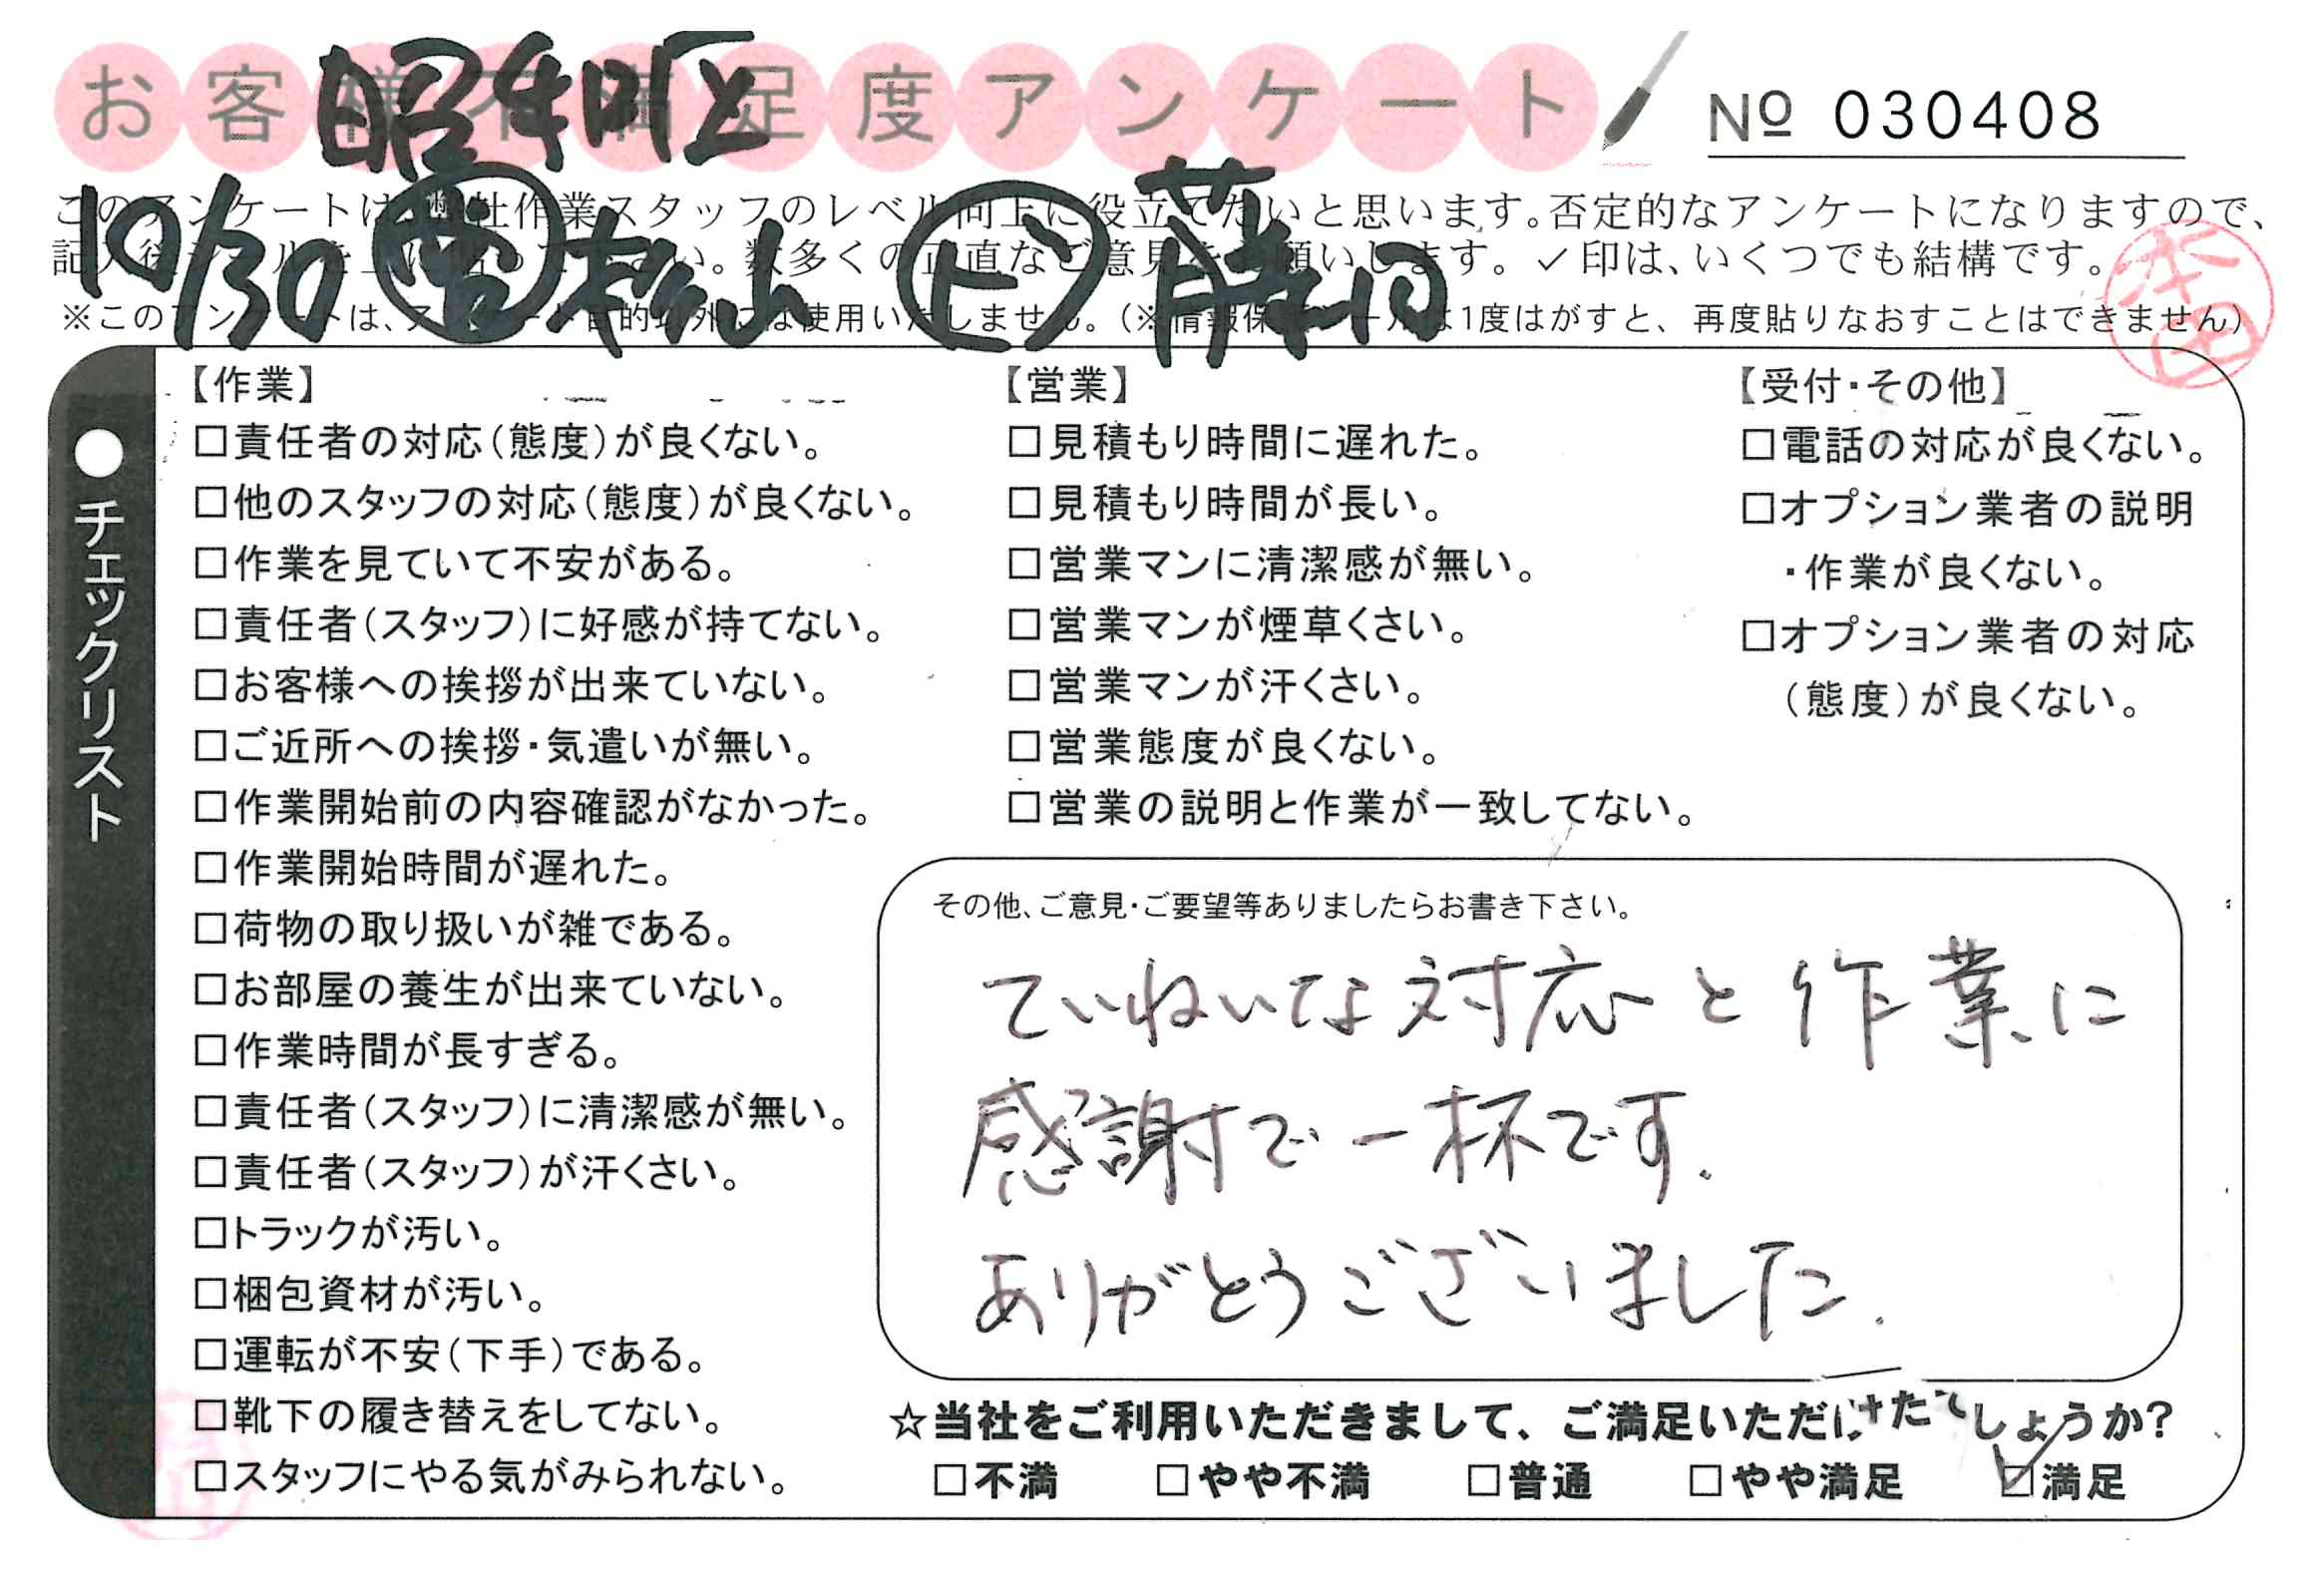 お客様不満足度アンケート
№ 030408
このアンケートは、弊社作業スタッフのレベル向上に役立てたいと思います。否定的なアンケートになりますので、
記入後シールを上に貼ってください。数多くの正直なご意見をお願いします。✓印は、いくつでも結構です。
は1度はがすと、再度貼りなおすことはできません）
10/30 営 杉山 ㋪ 藤田
本田
●チェックリスト
【作業】
□責任者の対応（態度）が良くない。
□他のスタッフの対応（態度）が良くない。
□作業を見ていて不安がある。
□責任者（スタッフ）に好感が持てない。
□お客様への挨拶が出来ていない。
□ご近所への挨拶・気遣いが無い。
□作業開始前の内容確認がなかった。
□作業開始時間が遅れた。
□荷物の取り扱いが雑である。
□お部屋の養生が出来ていない。
□作業時間が長すぎる。
□責任者（スタッフ）に清潔感が無い。
□責任者（スタッフ）が汗くさい。
□トラックが汚い。
□梱包資材が汚い。
□運転が不安（下手）である。
□靴下の履き替えをしてない。
□スタッフにやる気がみられない。
【営業】
□見積もり時間に遅れた。
□見積もり時間が長い。
□営業マンに清潔感が無い。
□営業マンが煙草くさい。
□営業マンが汗くさい。
□営業態度が良くない。
□営業の説明と作業が一致してない。
【受付・その他】
□電話の対応が良くない。
□オプション業者の説明
・作業が良くない。
□オプション業者の対応
（態度）が良くない。
その他、ご意見・ご要望等ありましたらお書き下さい。
ていねいな対応と作業に
感謝で一杯です.
ありがとうございました.
☆当社をご利用いただきまして、ご満足いただけたでしょうか?
□不満 □やや不満 □普通 □やや満足 ☑満足
杉山